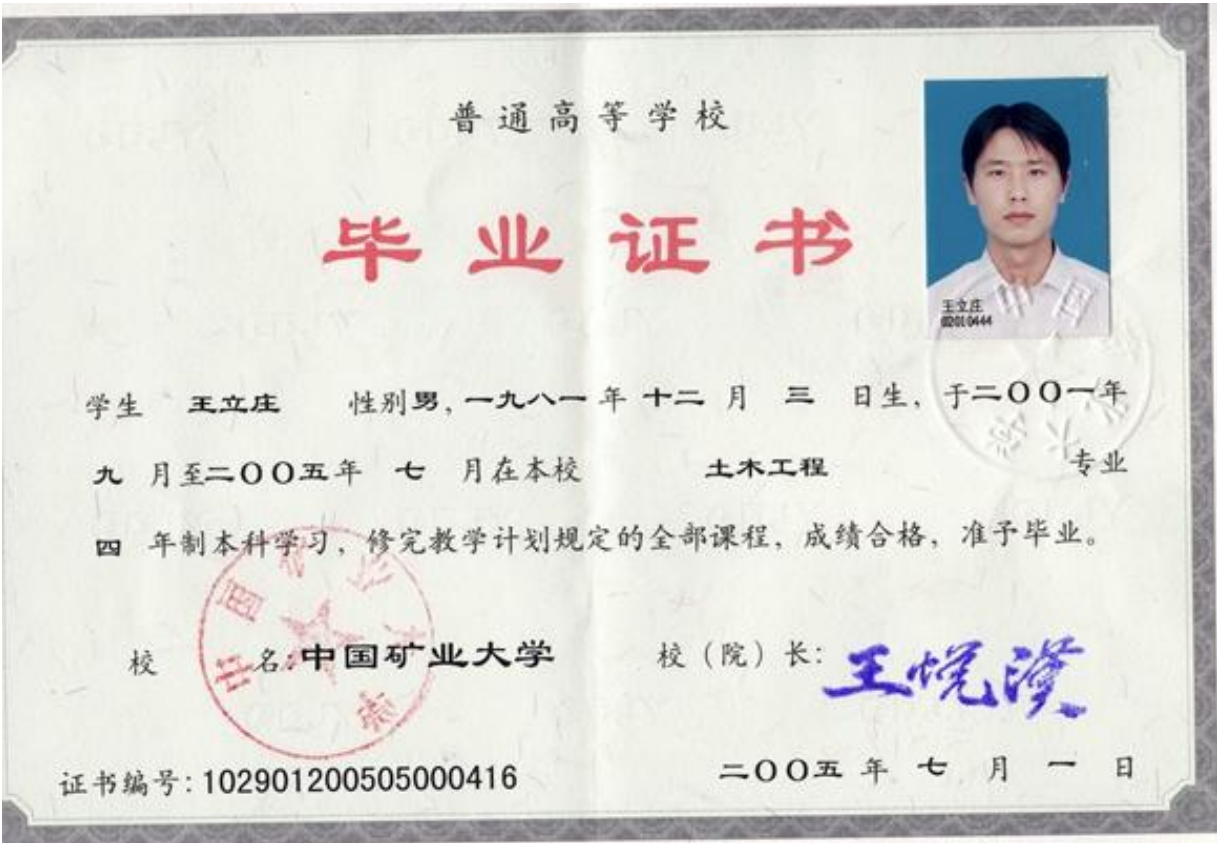 普通高等学校
毕业证书
王立庄
02010444
学生 王立庄 性别男,一九八一年 十二 月 三 日生,于二〇〇一年
九 月至二〇〇五年 七 月在本校 土木工程 专业
四 年制本科学习,修完教学计划规定的全部课程,成绩合格,准予毕业。
中国矿业大学
校 名:中国矿业大学 校(院)长:
证书编号:102901200505000416 二〇〇五 年 七 月 一 日